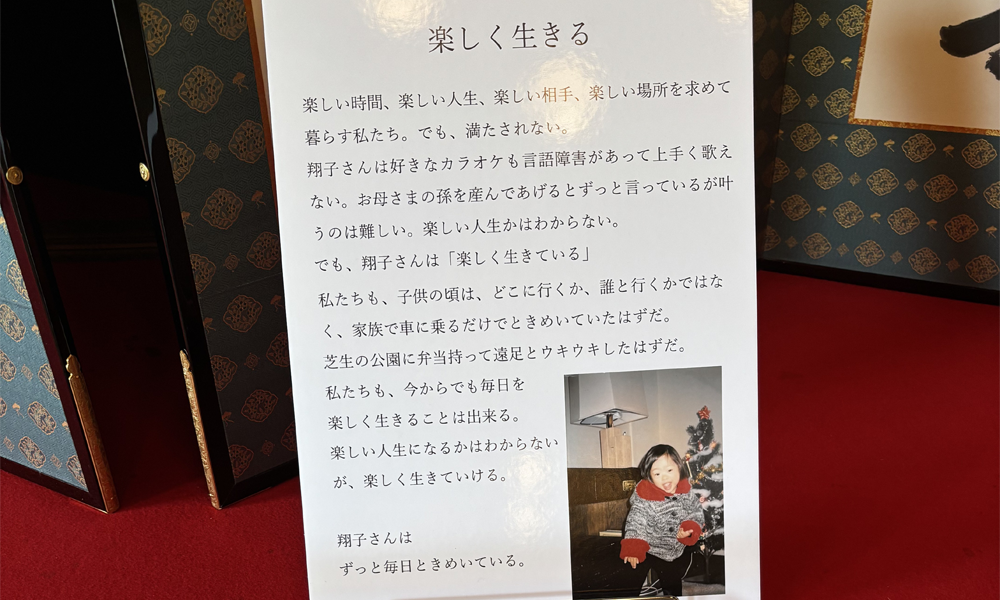 楽しく生きる
楽しい時間、楽しい人生、楽しい相手、楽しい場所を求めて
暮らす私たち。でも、満たされない。
翔子さんは好きなカラオケも言語障害があって上手く歌え
ない。お母さまの孫を産んであげるとずっと言っているが叶
うのは難しい。楽しい人生かはわからない。
でも、翔子さんは「楽しく生きている」
私たちも、子供の頃は、どこに行くか、誰と行くかではな
く、家族で車に乗るだけでときめいていたはずだ。
芝生の公園に弁当持って遠足とウキウキしたはずだ。
私たちも、今からでも毎日を
楽しく生きることは出来る。
楽しい人生になるかはわからない
が、楽しく生きていける。
翔子さんは
ずっと毎日ときめいている。